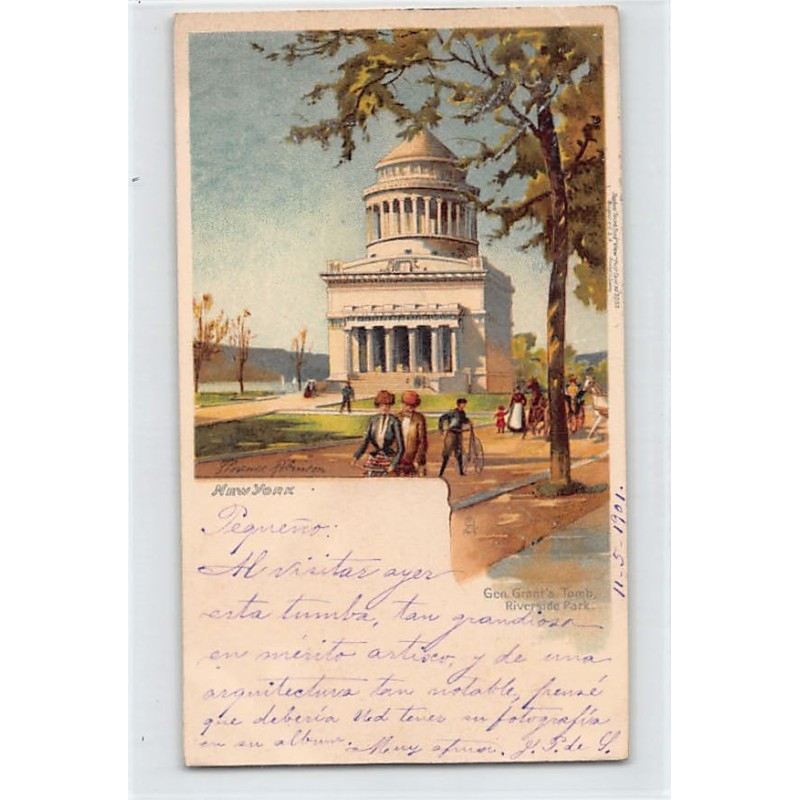 New York
Gen. Grant's Tomb,
Riverside Park.
11-5-1901.
Pequeño:
Al visitar ayer
esta tumba, tan grandiosa
en mérito artisco, y de una
arquitectura tan notable, pensé
que debería Ud tener su fotografía
en su album. Muy J. P. de S.